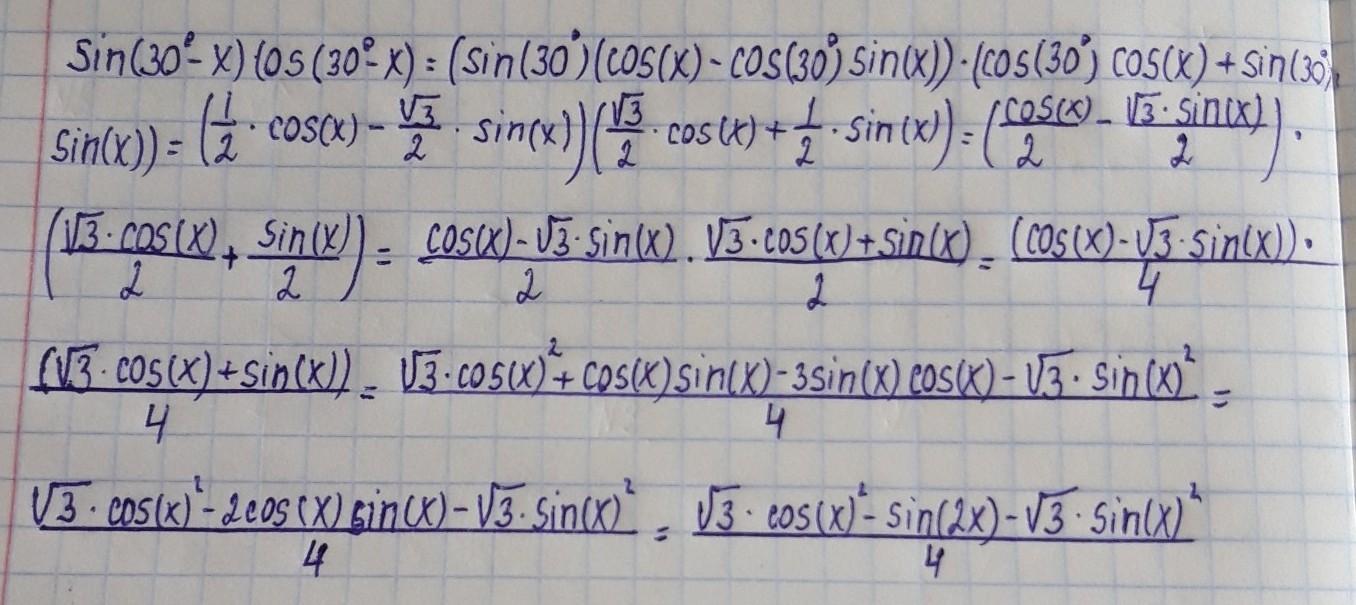 sin(30°-x)cos(30°-x)=(sin(30°)(cos(x)-cos(30°)sin(x))·(cos(30°)cos(x)+sin(30°)
sin(x))=(1/2·cos(x)-√3/2·sin(x))(√3/2·cos(x)+1/2·sin(x))=(cos(x)/2-√3·sin(x)/2)·
(√3·cos(x)/2+sin(x)/2)=cos(x)-√3·sin(x)/2·√3·cos(x)+sin(x)/2=(cos(x)-√3·sin(x))·/4
(√3·cos(x)+sin(x))/4=√3·cos(x)²+cos(x)sin(x)-3sin(x)cos(x)-√3·sin(x)²/4=
√3·cos(x)²-2cos(x)sin(x)-√3·sin(x)²/4=√3·cos(x)²-sin(2x)-√3·sin(x)²/4